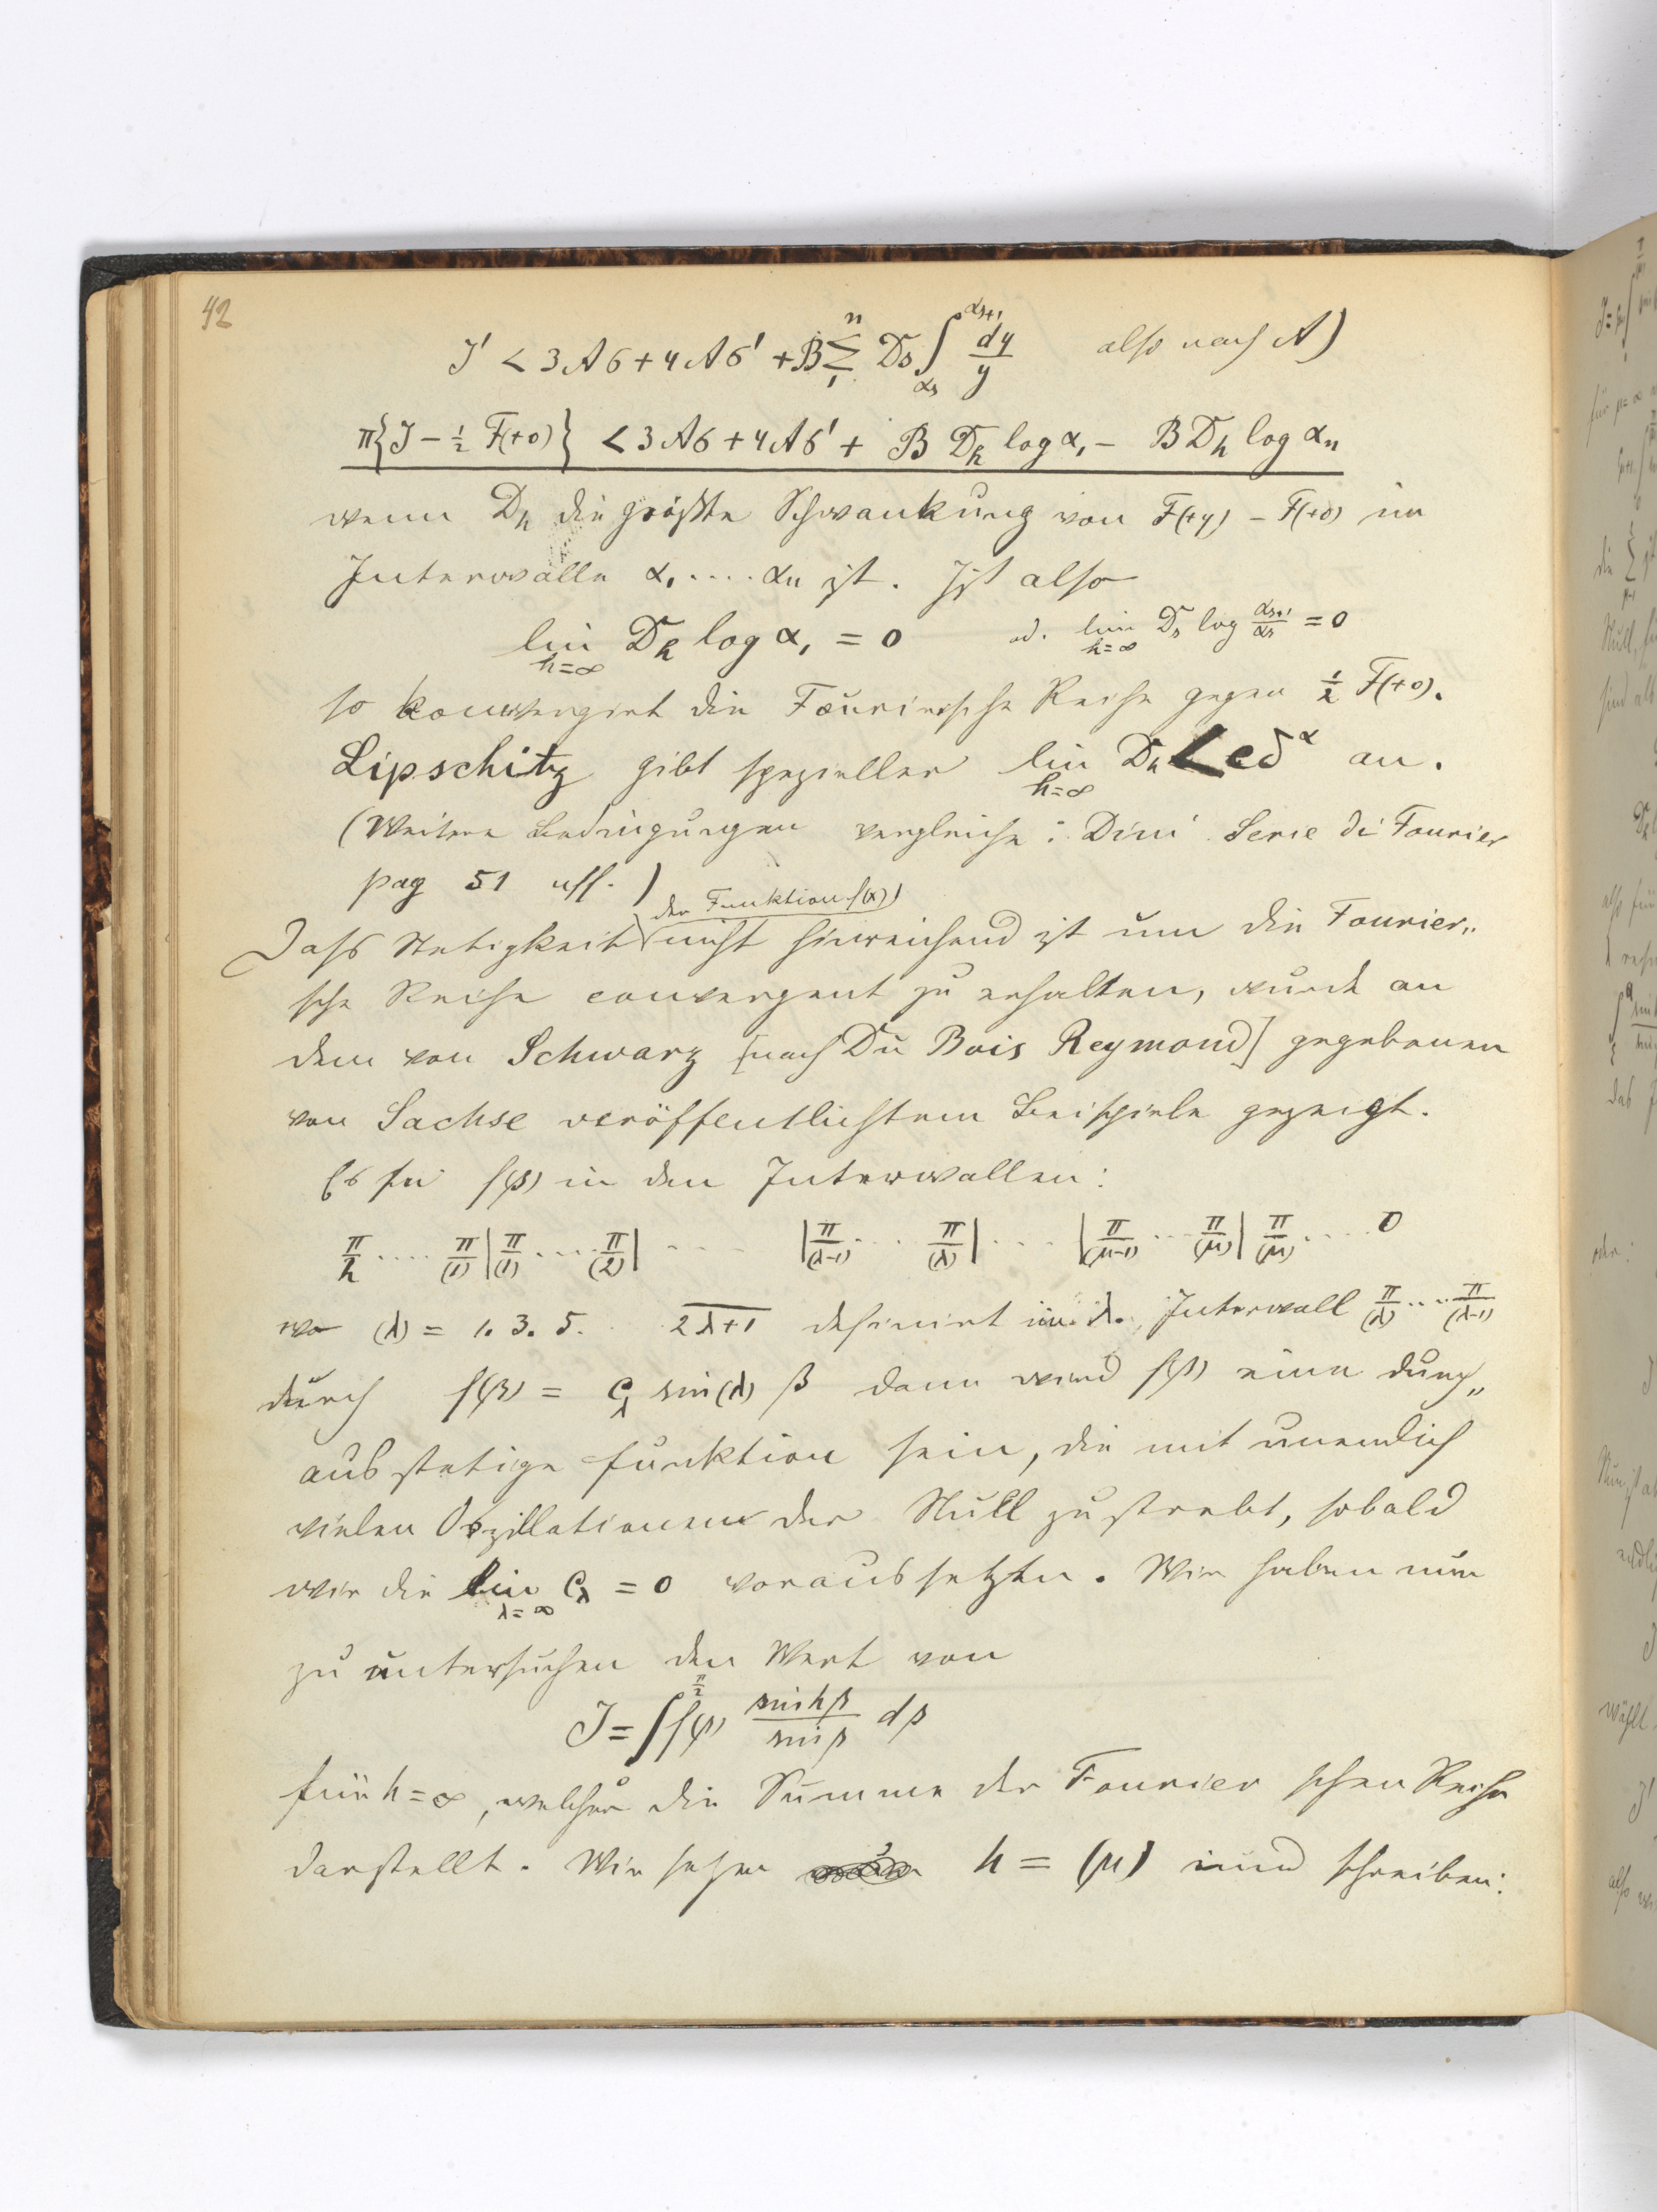 42
J' < 3Aσ + 4Aσ' + B Σ₁ⁿ Ds ∫_{αs}^{αs+1} dy/y also nach A)
π{J − ½ F(+0)} < 3Aσ + 4Aσ' + B Dh log α₁ − B Dh log αn
wenn Dh die größte Schwankung von F(+y) − F(+0) im
Intervalle α₁ .... αn ist. Ist also
lim_{h=∞} Dh log α₁ = 0 od. lim_{h=∞} Ds log αs+1/αs = 0
so konvergirt die Fourierische Reihe gegen ½ F(+0).
Lipschitz gibt spezieller lim_{h=∞} Dh < cδ^α an.
(Weitere Bedingungen vergleiche: Dini Serie di Fourier
pag 51 uff.)
der Funktion f(x)
Dass Stetigkeit nicht hinreichend ist um die Fourier„
sche Reihe convergent zu erhalten, wurde an
dem von Schwarz [nach Du Bois Reymond] gegebenen
von Sachse veröffentlichtem Beispiele gezeigt.
Es sei f(β) in den Intervallen:
π/h .... π/(1) | π/(1) .... π/(2) | .... | π/(λ-1) ... π/(λ) | .... | π/(μ-1) ... π/(μ) | π/(μ) .... 0
wo (λ) = 1. 3. 5. .. 2λ+1 definirt im λ. Intervall π/(λ) .... π/(λ-1)
durch f(β) = c_λ sin(λ) β dann wird f(β) eine durch„
aus stetige Funktion sein, die mit unendlich
vielen Oszillationen der Null zustrebt, sobald
wir die lim_{λ=∞} c_λ = 0 voraussetzten. Wir haben nun
zu untersuchen den Wert von
J = ∫^{π/2} f(β) sin hβ/sin β dβ
für h = ∞, welcher die Summe der Fourier schen Reihe
darstellt. Wir sehen h = (μ) und schreiben: